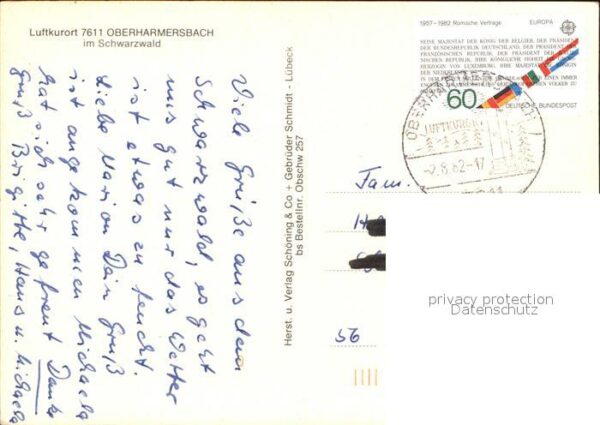 Luftkurort 7611 OBERHARMERSBACH
im Schwarzwald
Viele Grüße aus dem
Schwarzwald, es geht
uns gut nur das Wetter
ist etwas zu feucht.
Liebe Marion Dein Gruß
ist angekommen Michaela
hat sich sehr gefreut Danke
Gruß Brigitte, Hans u. Michaela
Herst. u. Verlag Schöning & Co + Gebrüder Schmidt - Lübeck
bs Bestellnr. Obschw 257
1957-1982 Römische Verträge EUROPA
SEINE MAJESTÄT DER KÖNIG DER BELGIER, DER PRÄSIDENT
DER BUNDESREPUBLIK DEUTSCHLAND, DER PRÄSIDENT DER
FRANZÖSISCHEN REPUBLIK, DER PRÄSIDENT DER
REPUBLIK, IHRE KÖNIGLICHE HOHEIT DIE
HERZOGIN VON LUXEMBURG, IHRE MAJESTÄT
DER NIEDERLANDE
60
DEUTSCHE BUNDESPOST
LUFTKURORT
-2.8.82-17
Fam.
56
privacy protection
Datenschutz